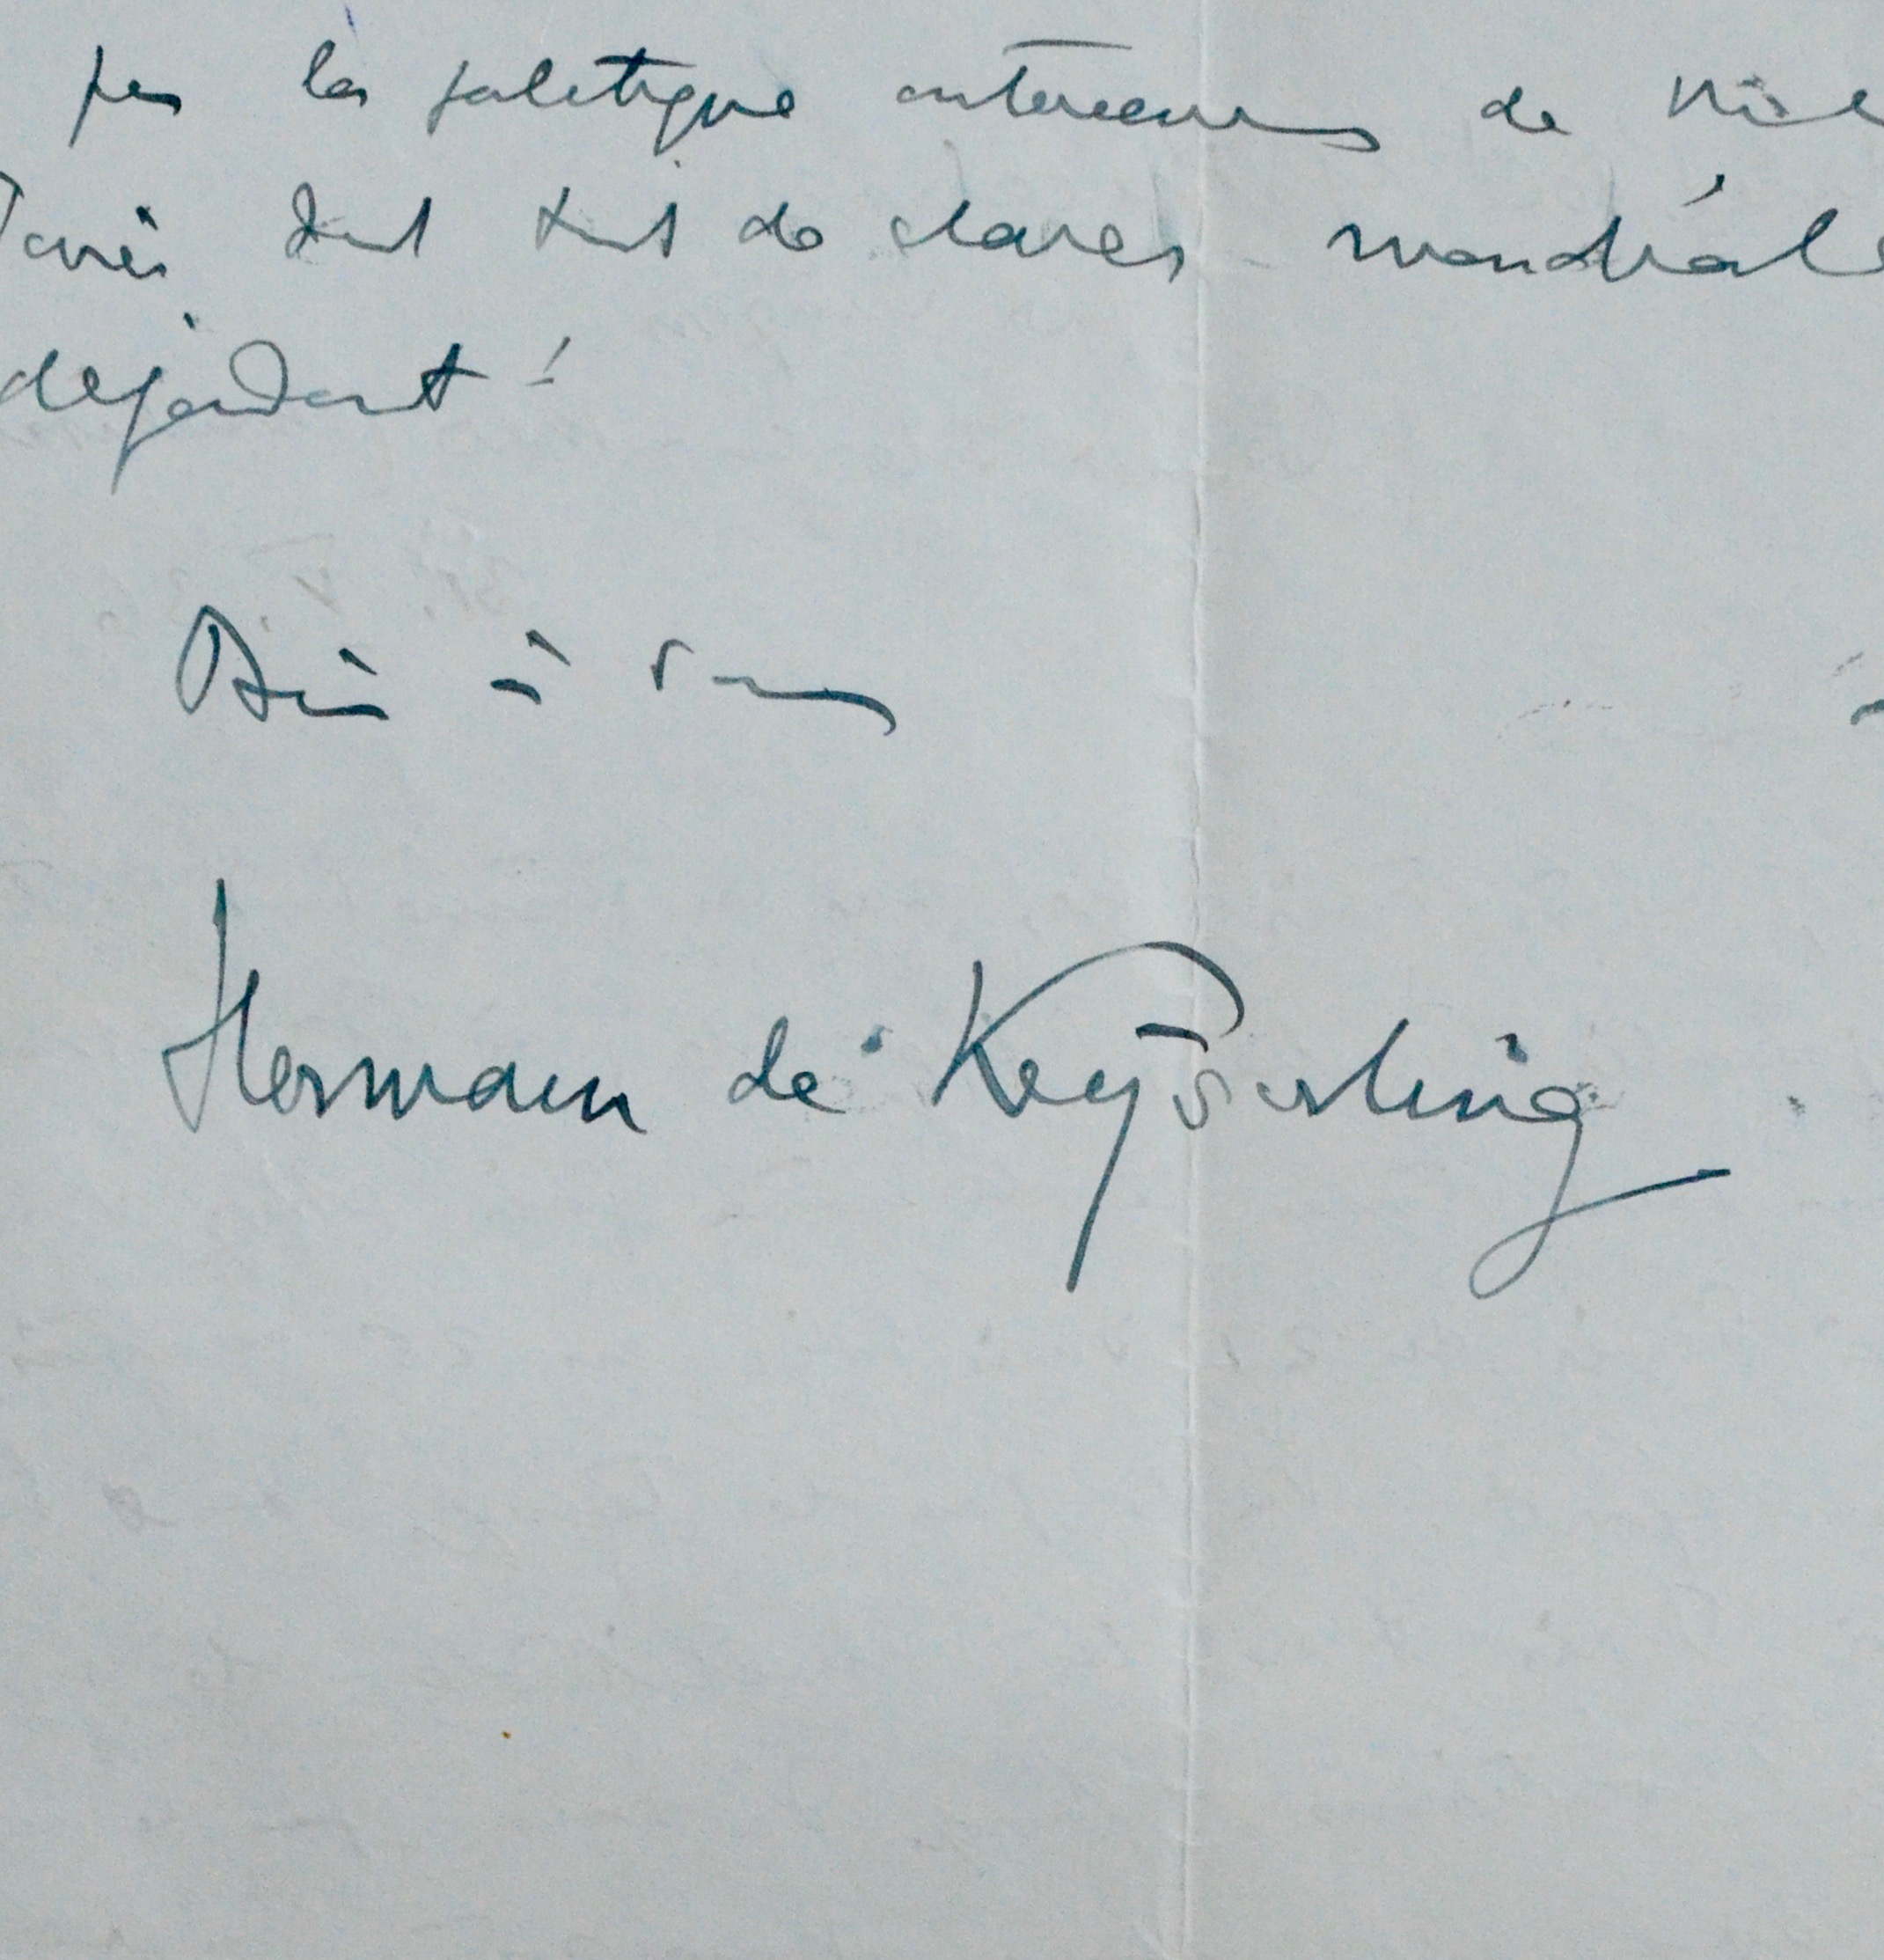 par la politique intérieure de
Paris dont tant de choses mondiales
dépendent !
Bien à vous
Hermann de Keyserling